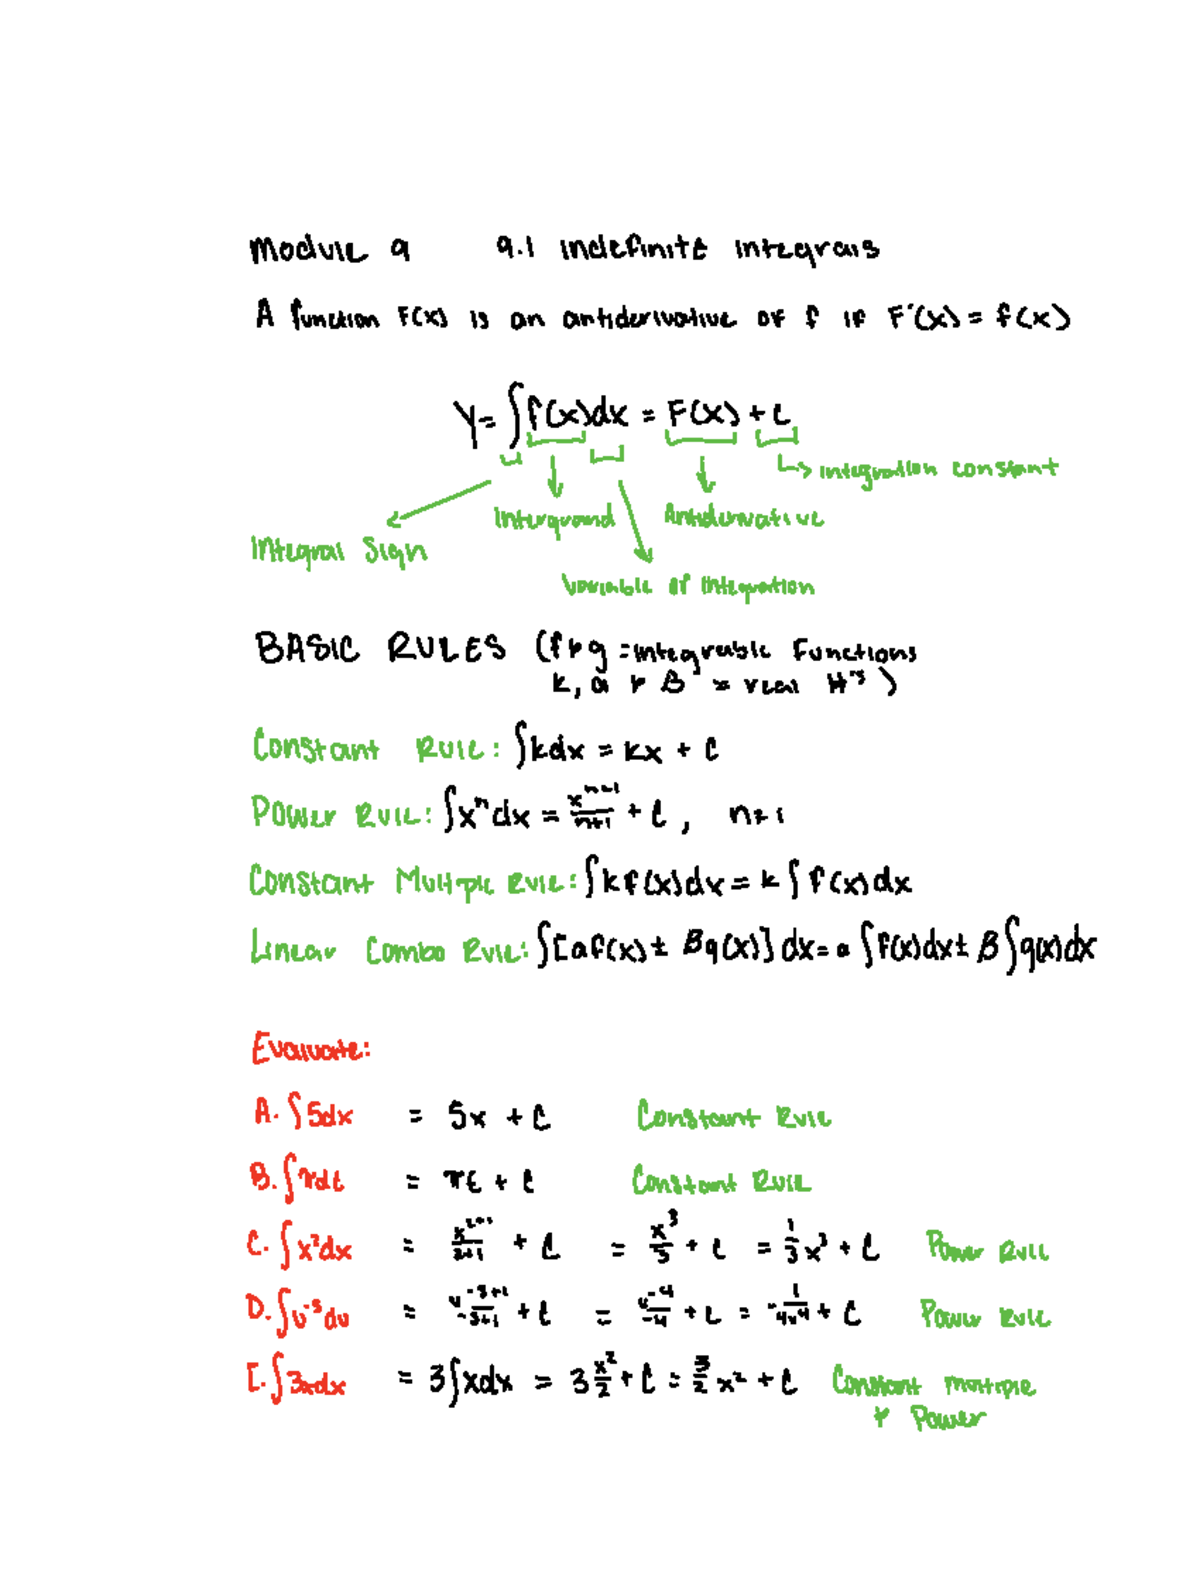 Module 9 9.1 Indefinite Integrals
A function F(x) is an antiderivative of f if F'(x) = f(x)
Y = ∫f(x)dx = F(x) + C
→ integration constant
Interquand Antiderivative
Integral Sign
Variable of Integration
BASIC RULES (f & g = integrable Functions
k, α & β = real #'s)
Constant Rule: ∫kdx = kx + C
Power Rule: ∫xⁿdx = xⁿ⁺¹/n+1 + C, n≠1
Constant Multiple Rule: ∫kf(x)dx = k∫f(x)dx
Linear Combo Rule: ∫[αf(x) ± βg(x)]dx = α∫f(x)dx ± β∫g(x)dx
Evaluate:
A. ∫5dx = 5x + C Constant Rule
B. ∫πdt = πt + C Constant Rule
C. ∫x²dx = x²⁺¹/2+1 + C = x³/3 + C = 1/3 x³ + C Power Rule
D. ∫u⁻⁵du = u⁻⁵⁺¹/-5+1 + C = u⁻⁴/-4 + C = -1/4u⁴ + C Power Rule
E. ∫3xdx = 3∫xdx = 3 x²/2 + C = 3/2 x² + C Constant multiple
& Power